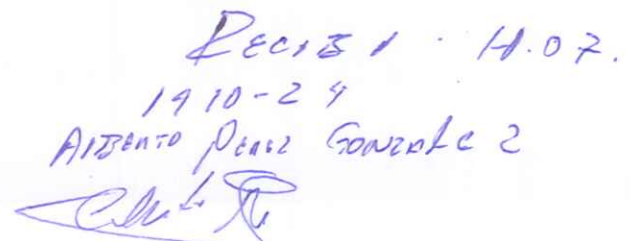 RECIBI 14.07.
1910-24
ALBERTO PEREZ GONZALEZ